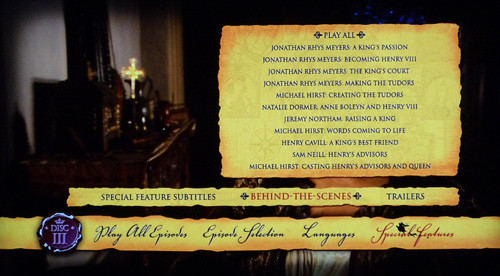 PLAY ALL
JONATHAN RHYS MEYERS: A KING'S PASSION
JONATHAN RHYS MEYERS: BECOMING HENRY VIII
JONATHAN RHYS MEYERS: THE KING'S COURT
JONATHAN RHYS MEYERS: MAKING THE TUDORS
MICHAEL HIRST: CREATING THE TUDORS
NATALIE DORMER: ANNE BOLEYN AND HENRY VIII
JEREMY NORTHAM: RAISING A KING
MICHAEL HIRST: WORDS COMING TO LIFE
HENRY CAVILL: A KING'S BEST FRIEND
SAM NEILL: HENRY'S ADVISORS
MICHAEL HIRST: CASTING HENRY'S ADVISORS AND QUEEN
SPECIAL FEATURE SUBTITLES BEHIND-THE-SCENES TRAILERS
DISC III Play All Episodes Episode Selection Languages Special Features